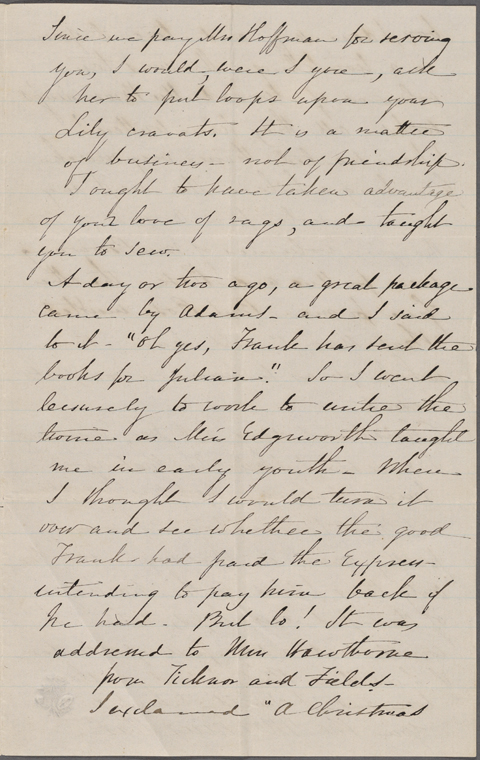 Since we pay Mrs Hoffman for serving
you, I would, were I you, ask
her to put loops upon your
Lily cravats. It is a matter
of business - not of friendship.
I ought to have taken advantage
of your love of rags, and taught
you to sew.
A day or two ago, a great package
came by Adams - and I said
to it - "Oh yes, Frank has sent the
books for Julian." So I went
leisurely to work to untie the
twine as Miss Edgworth taught
me in early youth - When
I thought I would turn it
over and see whether the good
Frank had paid the Express -
intending to pay him back if
he had - But lo! It was
addressed to Miss Hawthorne
from Ticknor and Fields -
I exclaimed "A Christmas